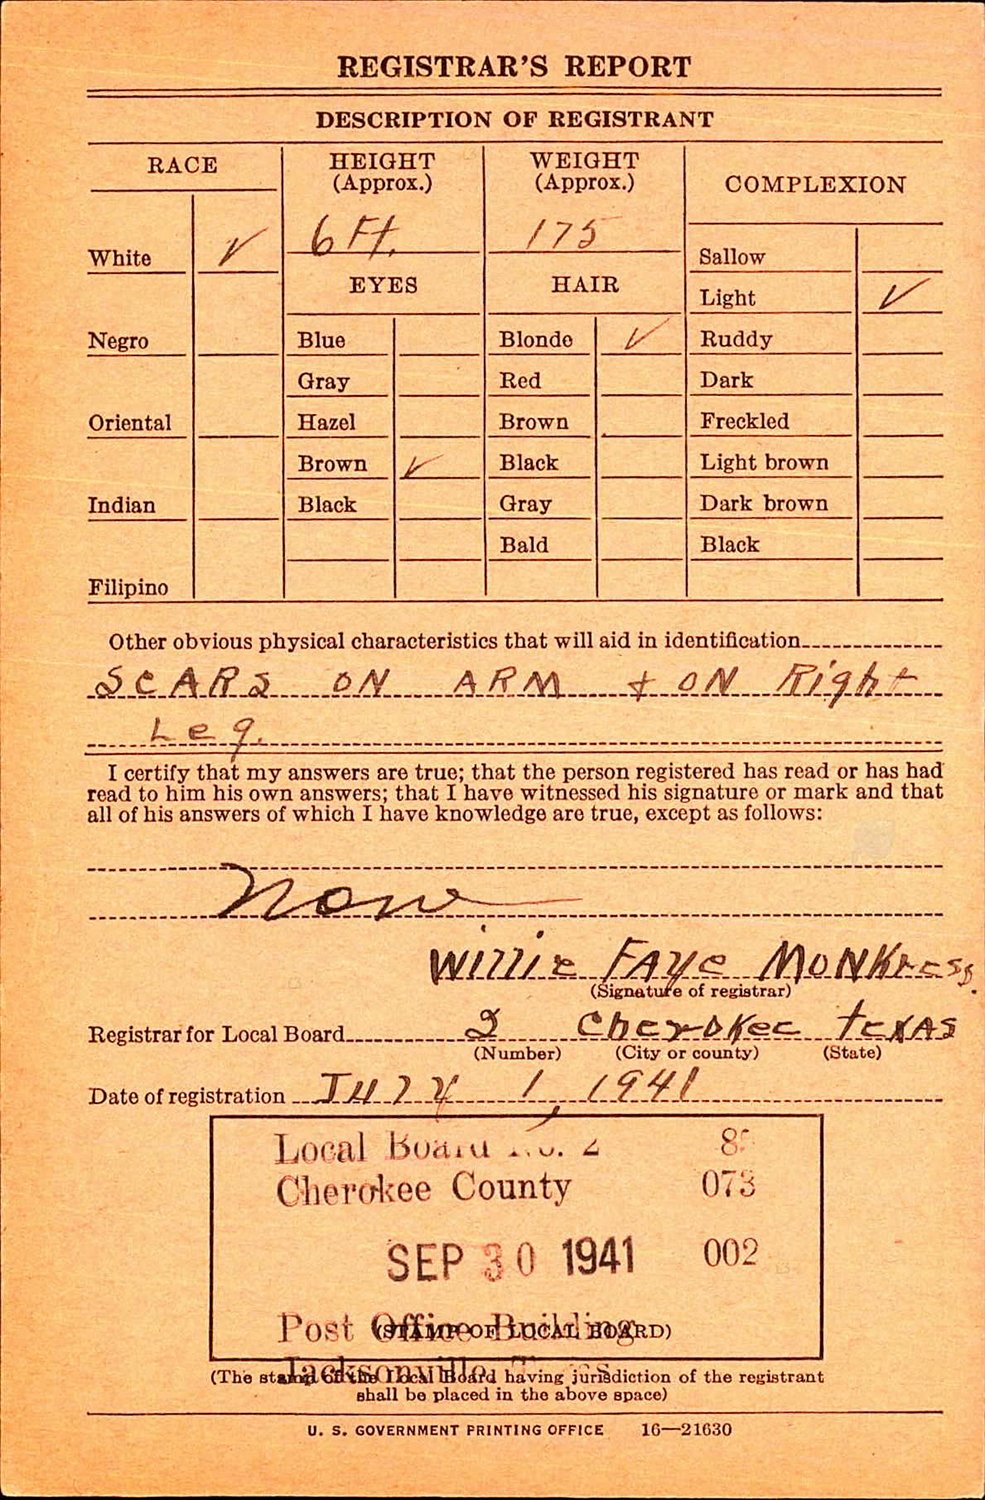 REGISTRAR'S REPORT
DESCRIPTION OF REGISTRANT
RACE HEIGHT (Approx.) WEIGHT (Approx.) COMPLEXION
6 Ft. 175
White ✓ Sallow
EYES HAIR
Light ✓
Negro Blue Blonde ✓ Ruddy
Gray Red Dark
Oriental Hazel Brown Freckled
Brown ✓ Black Light brown
Indian Black Gray Dark brown
Bald Black
Filipino
Other obvious physical characteristics that will aid in identification
SCARS ON ARM + ON Right
Leg.
I certify that my answers are true; that the person registered has read or has had
read to him his own answers; that I have witnessed his signature or mark and that
all of his answers of which I have knowledge are true, except as follows:
None
Willie FAye MONKress.
(Signature of registrar)
Registrar for Local Board 2 Cherokee texAS
(Number) (City or county) (State)
Date of registration July 1, 1941
Local Board No. 2
Cherokee County 073
SEP 30 1941 002
Post Office Building
(STAMP OF LOCAL BOARD)
Jacksonville, Texas
(The stamp of the Local Board having jurisdiction of the registrant
shall be placed in the above space)
U. S. GOVERNMENT PRINTING OFFICE 16—21630